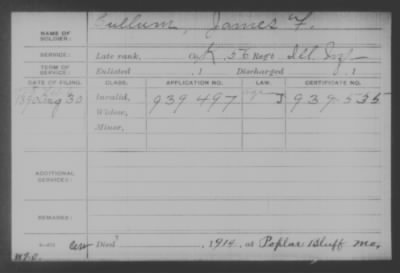 NAME OF SOLDIER: Cullum, James F.
SERVICE: Late rank, Co. K, 56 Regt. Ill. Inf.
TERM OF SERVICE: Enlisted , 1 Discharged , 1
DATE OF FILING. CLASS. APPLICATION NO. LAW. CERTIFICATE NO.
1890 Aug 30 Invalid, 939 497 J 939.535
Widow,
Minor,
ADDITIONAL SERVICES:
REMARKS:
Died , 1914, at Poplar Bluff Mo.